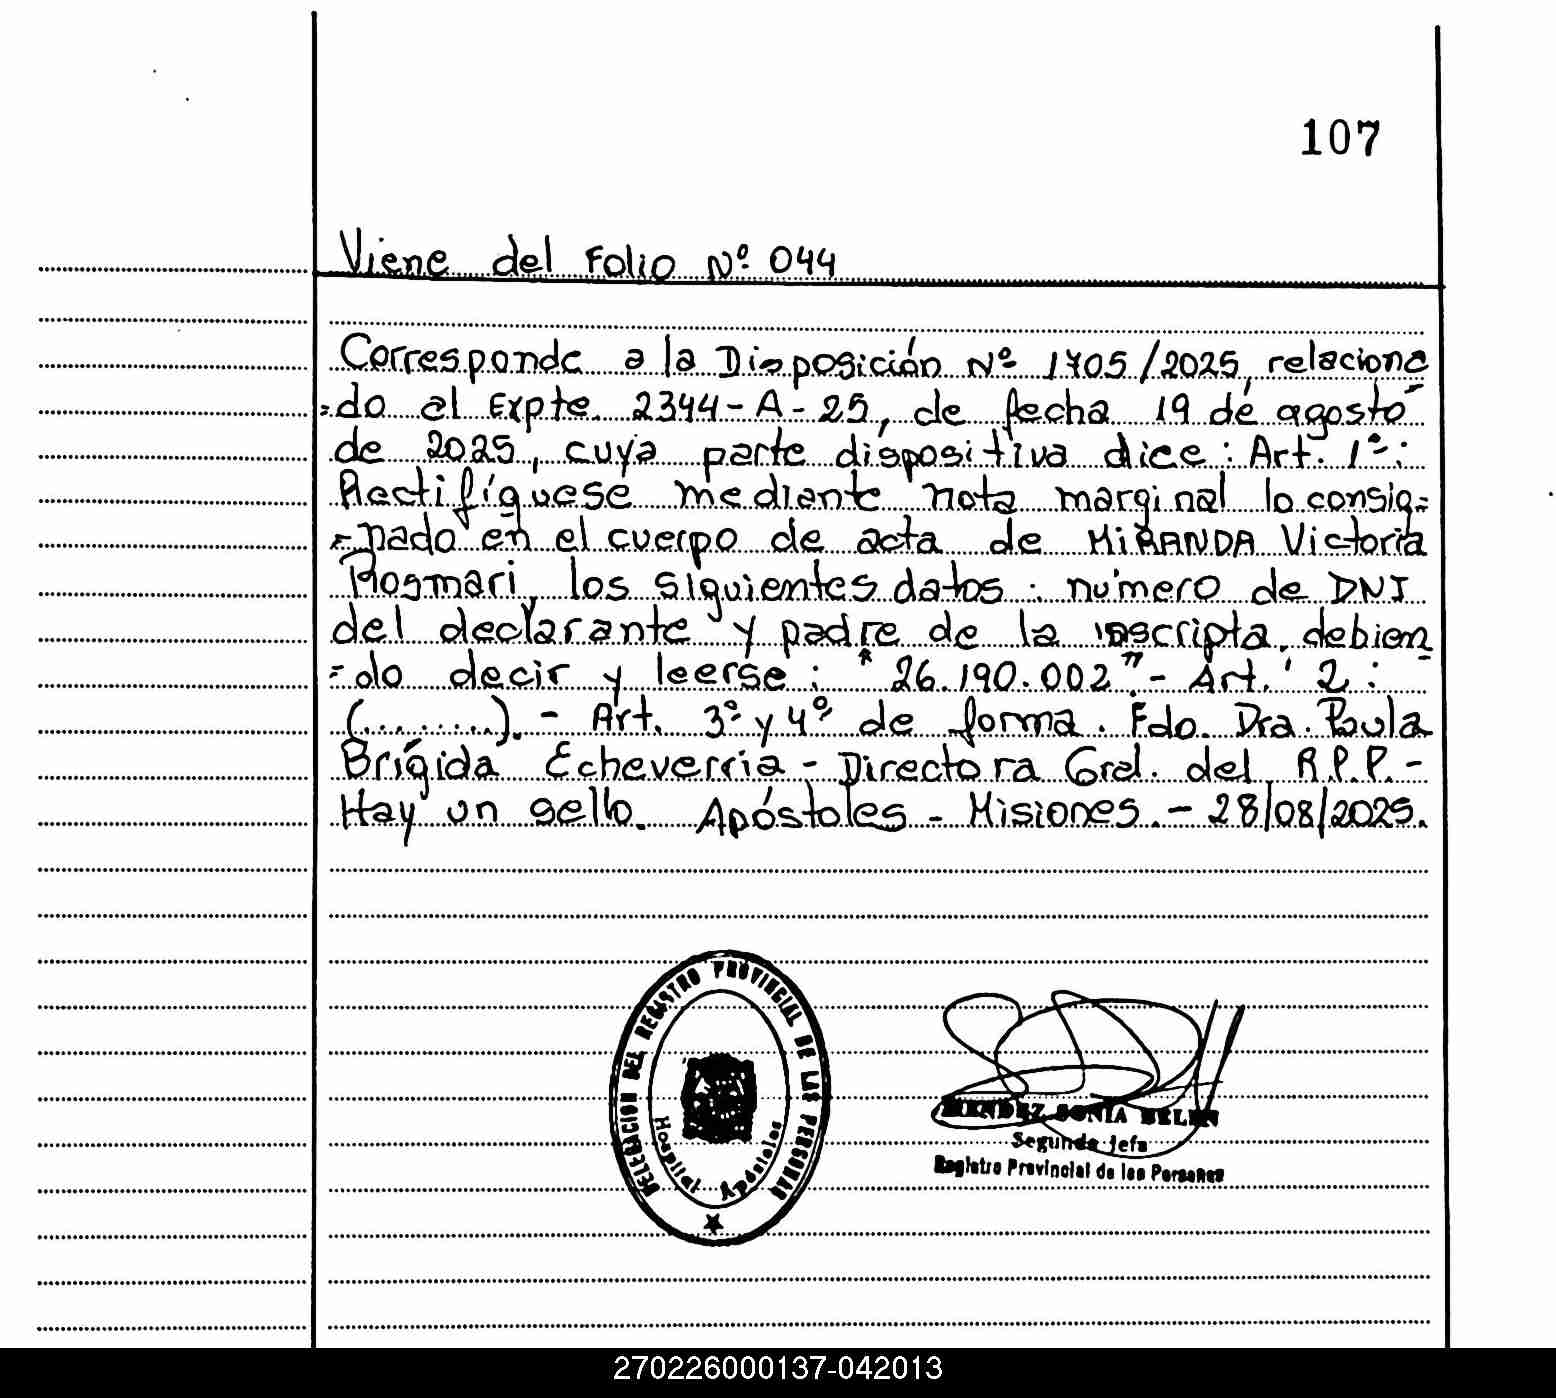 107
Viene del Folio Nº 044
Corresponde a la Disposición Nº 1705/2025, relaciona
=do al Expte. 2344-A-25, de fecha 19 de agosto
de 2025, cuya parte dispositiva dice: Art. 1º:
Rectifíquese mediante nota marginal lo consig=
=nado en el cuerpo de acta de MIRANDA Victoria
Rosmari, los siguientes datos: número de DNI
del declarante y padre de la inscripta, debien
=do decir y leerse: "26.190.002".- Art. 2:
(........).- Art. 3º y 4º de forma. Fdo. Dra. Paula
Brígida Echeverria - Directora Gral. del R.P.P.-
Hay un sello. Apóstoles - Misiones.- 28/08/2025.
DELEGACION DEL REGISTRO PROVINCIAL DE LAS PERSONAS
Hospital Apóstoles
MENDEZ SONIA BELEN
Segunda Jefa
Registro Provincial de las Personas
270226000137-042013